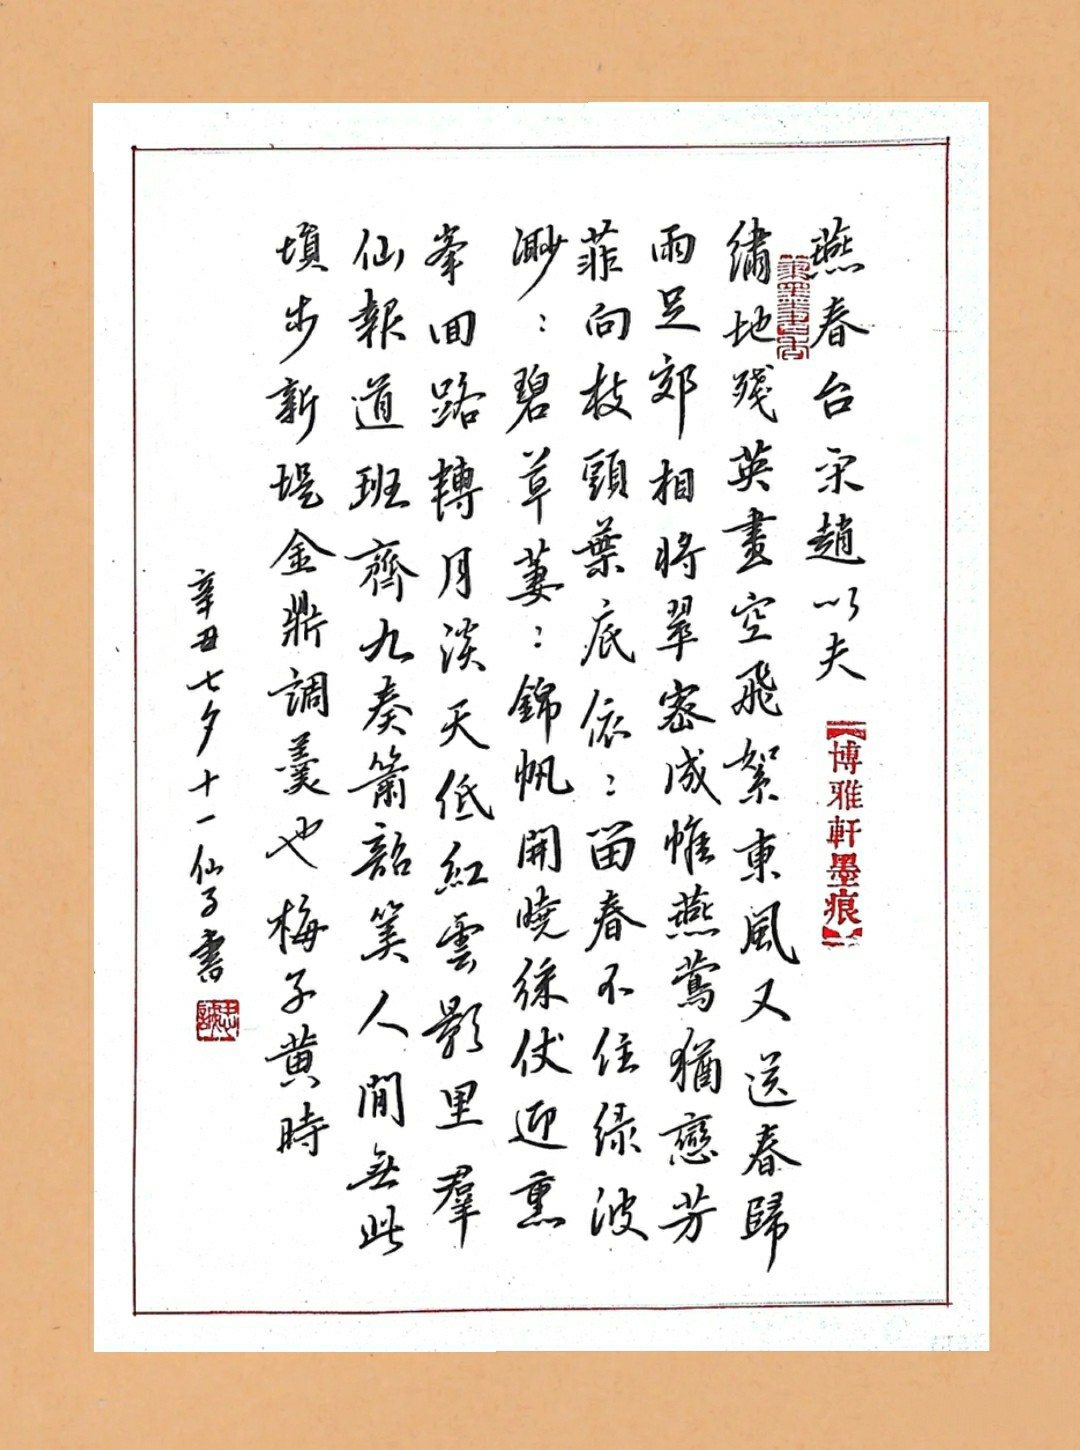 燕春台宋趙以夫
【博雅軒墨痕】
繡地殘英畫空飛絮東風又送春歸
雨足郊相將翠密成帷燕鶯猶戀芳
菲向枝頭葉底依：留春不住綠波
渺：碧草萋：錦帆開曉綵仗迎熏
峯回路轉月淡天低紅雲影里羣
仙報道班齊九奏簫韶筭人間無此
塤步新堤金鼎調羹也梅子黃時
辛丑七夕十一仙子書